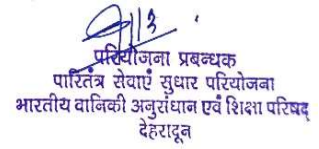 परियोजना प्रबन्धक
पारितंत्र सेवाएं सुधार परियोजना
भारतीय वानिकी अनुसंधान एवं शिक्षा परिषद्
देहरादून